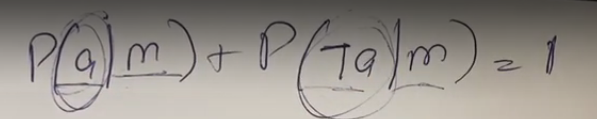 P(a|m) + P(¬a|m) = 1